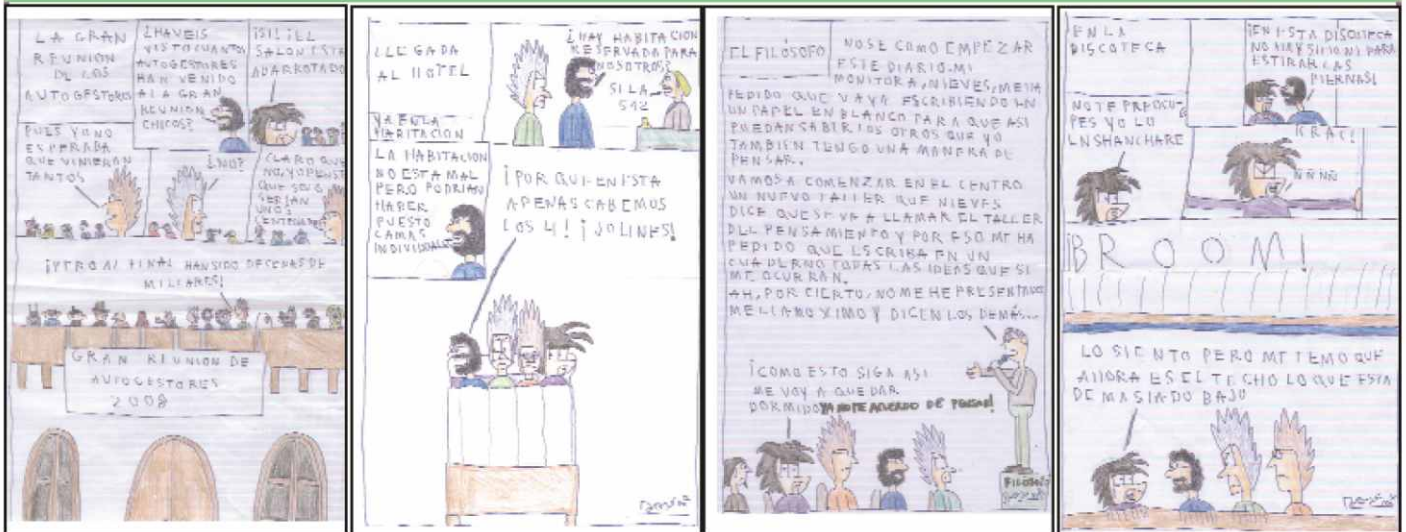 LA GRAN
REUNION
DE LOS
AUTOGESTORES
¿HAVEIS
VISTO CUANTOS
AUTOGESTORES
HAN VENIDO
A LA GRAN
REUNION
CHICOS?
¡SI! ¡EL
SALON ESTA
ABARROTADO
PUES YO NO
ESPERABA
QUE VINIERAN
TANTOS
¿NO?
CLARO QUE
NO, YO PENSE
QUE SOLO
SERIAN
UNOS
¡PERO AL FINAL HAN SIDO DECENAS DE
MILLARES!
GRAN REUNION DE
AUTOGESTORES
2008
LLEGADA
AL HOTEL
¿HAY HABITACION
RESERVADA PARA
NOSOTROS?
SI LA
512
YA EN LA
HABITACION
LA HABITACION
NO ESTA MAL
PERO PODRIAN
HABER
PUESTO
CAMAS
INDIVIDUALES
¡POR QUE EN ESTA
APENAS CABEMOS
LOS 4! ¡JOLINES!
EL FILOSOFO
NO SE COMO EMPEZAR
ESTE DIARIO. MI
MONITORA, NIEVES, ME HA
PEDIDO QUE VAYA ESCRIBIENDO EN
UN PAPEL EN BLANCO PARA QUE ASI
PUEDAN SABER LOS OTROS QUE YO
TAMBIEN TENGO UNA MANERA DE
PENSAR.
VAMOS A COMENZAR EN EL CENTRO
UN NUEVO TALLER QUE NIEVES
DICE QUE SE VA A LLAMAR EL TALLER
DEL PENSAMIENTO Y POR ESO ME HA
PEDIDO QUE ESCRIBA EN UN
CUADERNO TODAS LAS IDEAS QUE SE
ME OCURRAN.
AH, POR CIERTO, NO ME HE PRESENTADO
ME LLAMO XIMO Y DICEN LOS DEMÁS...
¡COMO ESTO SIGA ASI
ME VOY A QUEDAR
DORMIDO YA NO TE ACUERDO DE PENSAR!
FILOSOFO
EN LA
DISCOTECA
¡EN ESTA DISCOTECA
NO HAY SITIO NI PARA
ESTIRAR LAS
PIERNAS!
NO TE PREOCU-
PES YO LO
ENSHANCHARE
¡CRAC!
ÑÑÑÑ
¡BROOM!
LO SIENTO PERO ME TEMO QUE
AHORA ES EL TECHO LO QUE ESTA
DEMASIADO BAJO